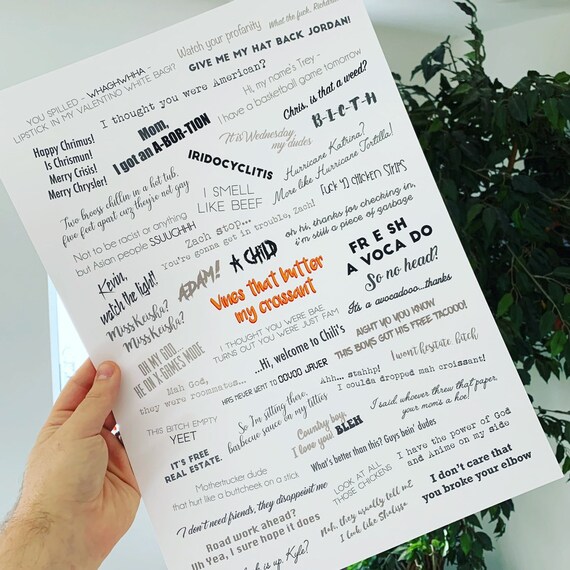 Watch your profanity
What the fuck, Richard
YOU SPILLED - WHAGHWHHA -
LIPSTICK IN MY VALENTINO WHITE BAG!?
GIVE ME MY HAT BACK JORDAN!
I thought you were American?
Hi, my name's Trey -
I have a basketball game tomorrow
Happy Chrimus!
Is Chrismun!
Merry Crisis!
Merry Chrysler!
Mom,
I got an A-BOR-TION
Chris, is that a weed?
It is Wednesday,
my dudes
B-I-C-T-H
IRIDOCYCLITIS
Hurricane Katrina?
More like Hurricane Tortilla!
Two brooss chillin in a hot tub,
five feet apart cuz they're not gay
I SMELL
LIKE BEEF
CHICKEN STRIPS
Not to be racist or anything
but Asian people SSUUCHHH
Zach stop...
You're gonna get in trouble, Zach!
oh hi, thanks for checking in,
i'm still a piece of garbage
Kevin,
watch the light!
ADAM!
A CHILD
FR E SH
A VOCA DO
Vines that butter
my croissant
So no head?
Miss Keisha?
Miss Keisha?
It's a avocadooo...thanks
I THOUGHT YOU WERE BAE
TURNS OUT YOU WERE JUST FAM
AIGHT YO YOU KNOW
THIS BOYS GOT HIS FREE TACOOO!
OH MY GOD,
HE ON X GAMES MODE
...Hi, welcome to Chili's
I won't hesitate bitch
Mah God,
they were roommates...
HAS NEVER WENT TO OOVOO JAVER
Ahh... stahhp!
I coulda dropped mah croissant!
THIS BITCH EMPTY
YEET
So I'm sitting there,
barbecue sauce on my titties
I said, whoever threw that paper,
your mom's a hoe!
Country boy,
I love you! BLEH
IT'S FREE
REAL ESTATE.
What's better than this? Guys bein' dudes
I have the power of God
and Anime on my side
Mothertrucker dude
that hurt like a buttcheek on a stick
LOOK AT ALL
THOSE CHICKENS
I don't care that
you broke your elbow
I don't need friends, they disappoint me
Nah, they usually tell me
I look like Shalissa
Road work ahead?
Uh Yea, I sure hope it does
is up, Kyle?